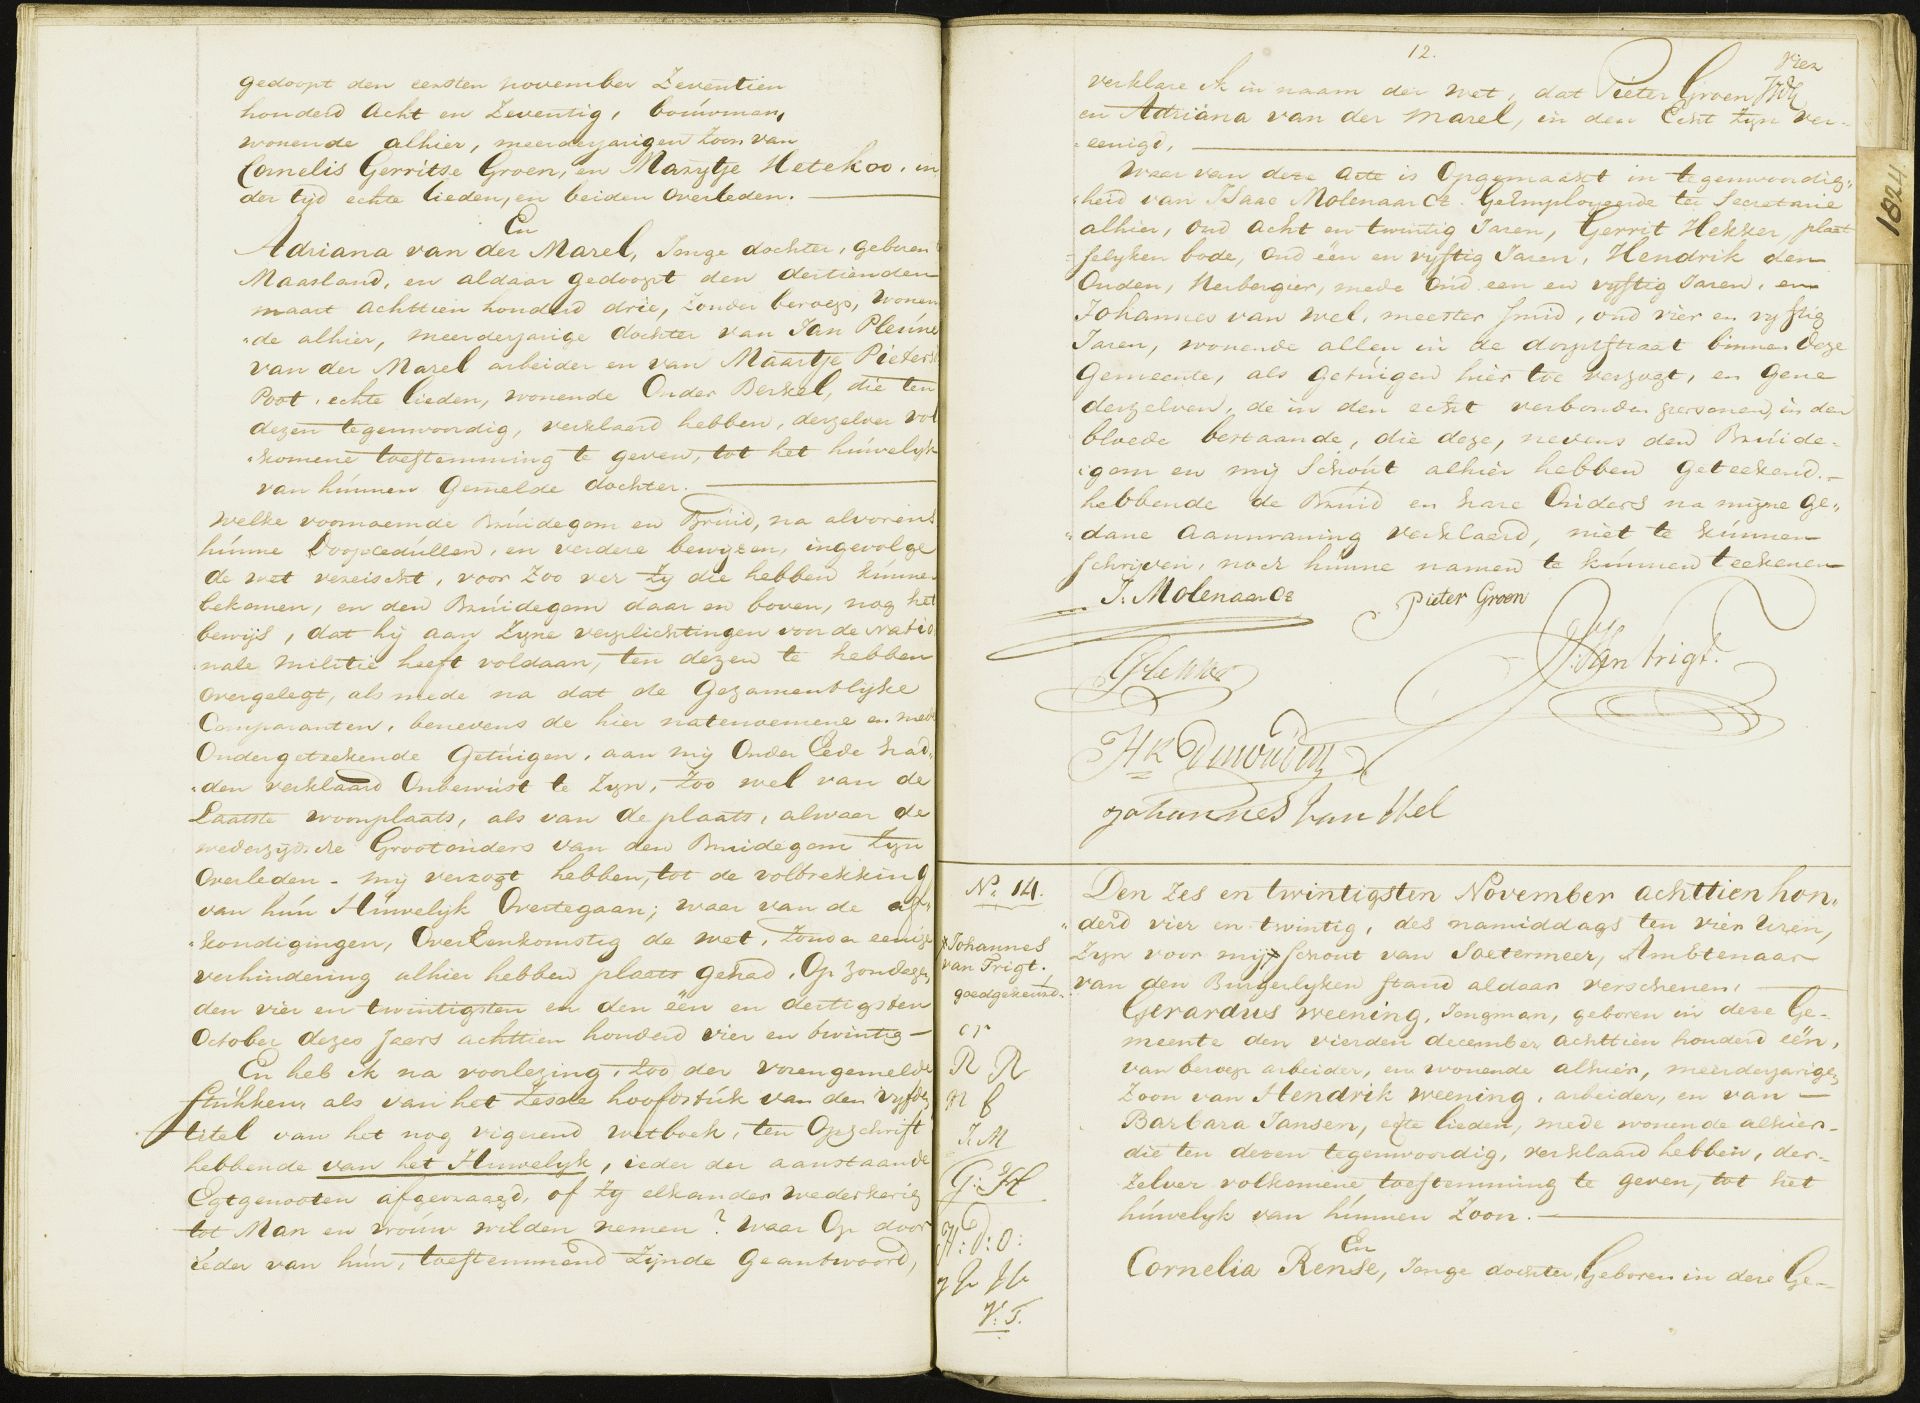 gedoopt den eersten november Zeventien
honderd acht en Zeventig, bouwman,
wonende alhier, meerderjarigen Zoon van
Cornelis Gerritse Groen, en Marytje Hetekoo. in
der tyd echte lieden, en beiden overleden.
En
Adriana van der Marel, Jonge dochter, geboren
Maasland, en aldaar gedoopt den dertienden
maart achttien honderd drie, zonder beroep, wonen
de alhier, meerderjarige dochter van Jan Pleúne
van der Marel arbeider en van Maartje Pieterse
Poot, echte lieden, wonende Onder Berkel, die ten
dezen tegenwoordig, verklaard hebben, derzelver vol
komene toestemming te geven, tot het húwelijk
van húnnen Gemelde dochter.
Welke voornoemde Brúidegom en Brúid, na alvorens
húnne Doopcedúllen, en verdere bewyzen, ingevolge
de wet vereischt, voor Zoo ver Zy die hebben kúnne
bekomen, en den Brúidegom daar en boven, nog het
bewijs, dat hij aan Zyne verplichtingen von de Natio
nale Militie heeft voldaan, ten dezen te hebben
overgelegt, als mede na dat de Gezamentlyke
Comparanten, benevens de hier natenoemene en mede
Ondergeteekende Getúigen, aan my Onder Eede had,
den verklaard Onbewúst te Zyn, Zoo wel van de
Laatste woonplaats, als van de plaats, alwaar de
wederzijdsche Grootouders van den Bruidegom Zyn
Overleden - my verzogt hebben, tot de volbrekking
van hún Húwelijk Overtegaan; waar van de af,
kondigingen, Overeenkomstig de wet, Zonder eenige
verhindering alhier hebben plaats gehad. Op Zondagen
den vier en twintigsten en den één en dertigsten
October dezes Jaars achttien honderd vier en twintig -
En heb ik na voorlezing, Zoo der vorengemelde
Stúkken, als van het Zesde hoofdstúk van den vyfden
titel van het nog vigerend wetboek, ten Opschrift
hebbende van het Huwelyk, ieder der aanstaande
Egtgenooten afgevraagd, of Zy elkander wederkerig
tot Man en vrouw wilden nemen? Waar Op door
ieder van hún, toestemmend Zijnde Geantwoord,
12.
verklare ik in naam der Wet, dat Pieter Groen
en Adriana van der Marel, in den Echt Zyn ver-
eenigd.
Waar van deze acte is Opgemaakt in tegenwoordig,
heid van Isaac Molenaar Cz. Geëmployeerde ter Secretarie
alhier, oud acht en twintig Jaren, Gerrit Hekker, plaat
felyken bode, oud één en vyftig Jaren, Hendrik den
Ouden, Herbergier, mede Oud een en vyftig Jaren, en
Johannes van Wel, meester Smid, oud vier en vyftig
Jaren, wonende allen in de dorpstraat binnen deze
Gemeente, als Getúigen hier toe verzogt, en Gene
derzelven, de in den echt verbonden personen, in den
bloede bestaande, die deze, nevens den Brúide-
gom en my Schout alhier hebben Geteekend.-
hebbende de Bruid en hare Ouders na mijne Ge,
dane aanmaning verklaard, niet te kúnnen
Schrijven, noch húnne namen te kúnnen teekenen
J. Molenaar Cz
Pieter Groen
J. Van Trigt.
GHekker
Hk Den ouden
Johannes van Wel
No. 14.
Den Zes en twintigsten November achttien hon,
derd vier en twintig, des namiddags ten vier Uren,
Zyn voor my Schout van Soetermeer, Ambtenaar
van den Burgerlyken stand aldaar verschenen,
Johannes
van Trigt.
goedgekeurd.
Gerardus Weening, Jongman, geboren in deze Ge-
meente den vierden december achttien honderd één,
van beroep arbeider, en wonende alhier, meerderjarige
Zoon van Hendrik Weening, arbeider, en van -
Barbara Jansen, egte lieden, mede wonende alhier-
die ten dezen tegenwoordig, verklaard hebben, der-
Zelver volkomene toestemming te geven, tot het
húwelyk van húnnen Zoon.
En
Cornelia Rense, Jonge dochter, Geboren in deze Ge-
J. M
G: H
H: D: O:
V: T.
1824